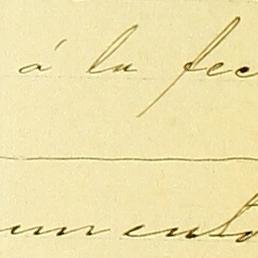 á la fec
umento